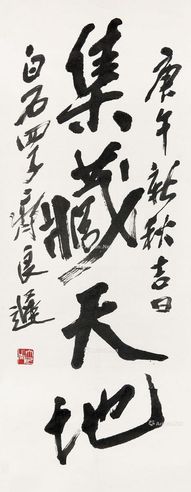 庚午新秋吉日
集藏天地
白石四子齐良迟